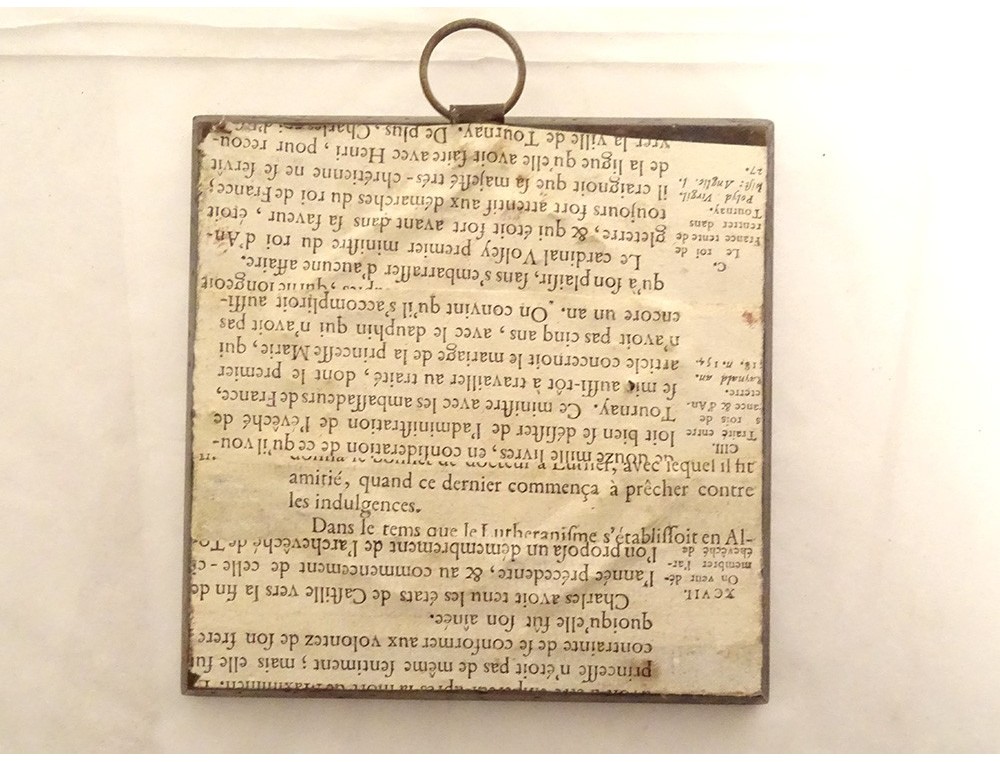 après la mort de Maximilien.
princeſſe n'étoit pas de même ſentiment ; mais elle fut
contrainte de ſe conformer aux volontez de ſon frere
quoiqu'elle fût ſon aînée.
Charles avoit tenu les états de Caſtille vers la fin de
l'année précedente, & au commencement de celle-ci
l'on propoſa un démembrement de l'archevêché de To-
XCVII.
On veut dé-
membrer l'ar-
chevêché de
avec lequel il fit
amitié, quand ce dernier commença à prêcher contre
les indulgences.
Dans le tems que le Lutheraniſme s'établiſſoit en Al-
de douze mille livres, en conſideration de ce qu'il vou-
loit bien ſe déſiſter de l'adminiſtration de l'évêché de
Tournay. Ce miniſtre avec les ambaſſadeurs de France,
ſe mit auſſi-tôt à travailler au traité, dont le premier
article concernoit le mariage de la princeſſe Marie, qui
n'avoit pas cinq ans, avec le dauphin qui n'avoit pas
encore un an. On convint qu'il s'accompliroit auſſi-
CIII.
Traité entre
s rois de
ance & d'An-
eterre.
Raynald. an.
n. 154.
qui ne ſongeoit
qu'à ſon plaiſir, ſans s'embarraſſer d'aucune affaire.
Le cardinal Volſey premier miniſtre du roi d'An-
gleterre, & qui étoit fort avant dans ſa faveur, étoit
toujours fort attentif aux démarches du roi de France ;
il craignoit que ſa majeſté très-chrétienne ne ſe ſervît
de la ligue qu'elle avoit faire avec Henri, pour recou-
vrer la ville de Tournay. De plus, Charles roi d'Eſ
C.
Le roi de
France tente de
rentrer dans
Tournay.
Polyd. Virgil.
hiſt. Anglic. l.
27.